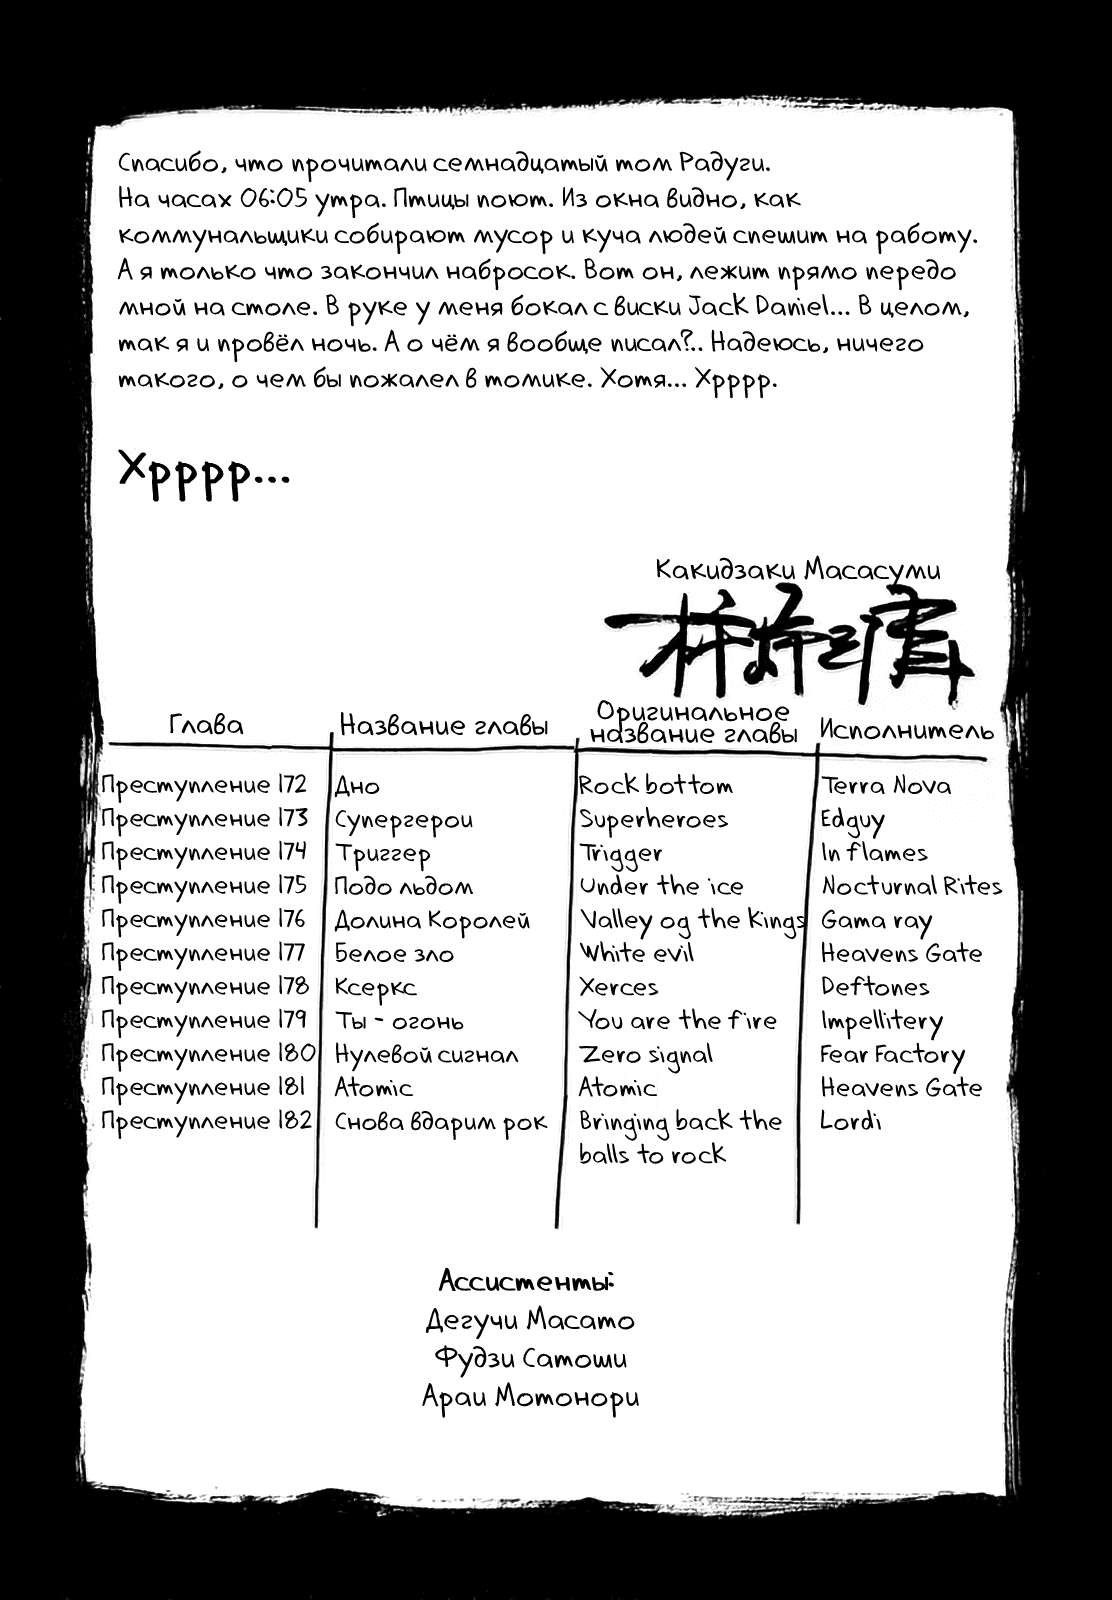 Спасибо, что прочитали семнадцатый том Радуги.
На часах 06:05 утра. Птицы поют. Из окна видно, как
коммунальщики собирают мусор и куча людей спешит на работу.
А я только что закончил набросок. Вот он, лежит прямо передо
мной на столе. В руке у меня бокал с виски Jack Daniel... В целом,
так я и провёл ночь. А о чём я вообще писал?.. Надеюсь, ничего
такого, о чем бы пожалел в томике. Хотя... Хрррр.
Хрррр...
Какидзаки Масасуми
Глава Название главы Оригинальное название главы Исполнитель
Преступление 172 Дно Rock bottom Terra Nova
Преступление 173 Супергерои Superheroes Edguy
Преступление 174 Триггер Trigger In flames
Преступление 175 Подо льдом Under the ice Nocturnal Rites
Преступление 176 Долина Королей Valley og the Kings Gama ray
Преступление 177 Белое зло White evil Heavens Gate
Преступление 178 Ксеркс Xerces Deftones
Преступление 179 Ты - огонь You are the fire Impellitery
Преступление 180 Нулевой сигнал Zero signal Fear Factory
Преступление 181 Atomic Atomic Heavens Gate
Преступление 182 Снова вдарим рок Bringing back the Lordi
balls to rock
Ассистенты:
Дегучи Масато
Фудзи Сатоши
Араи Мотонори